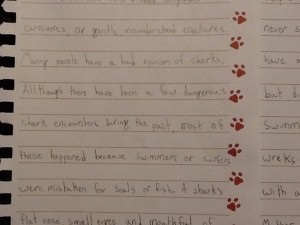 carnivores, or gentle, misunderstood creatures.
never s
Many people have a bad opinion of sharks.
have a
Allthough there have been a few dangerous
but d
shark encounters during the past, most of
Swimm
those happened because swimmers or surfers
wreks
were mistaken for seals or fish. A shark's
with a
flat nose, small eyes, and mouthful of